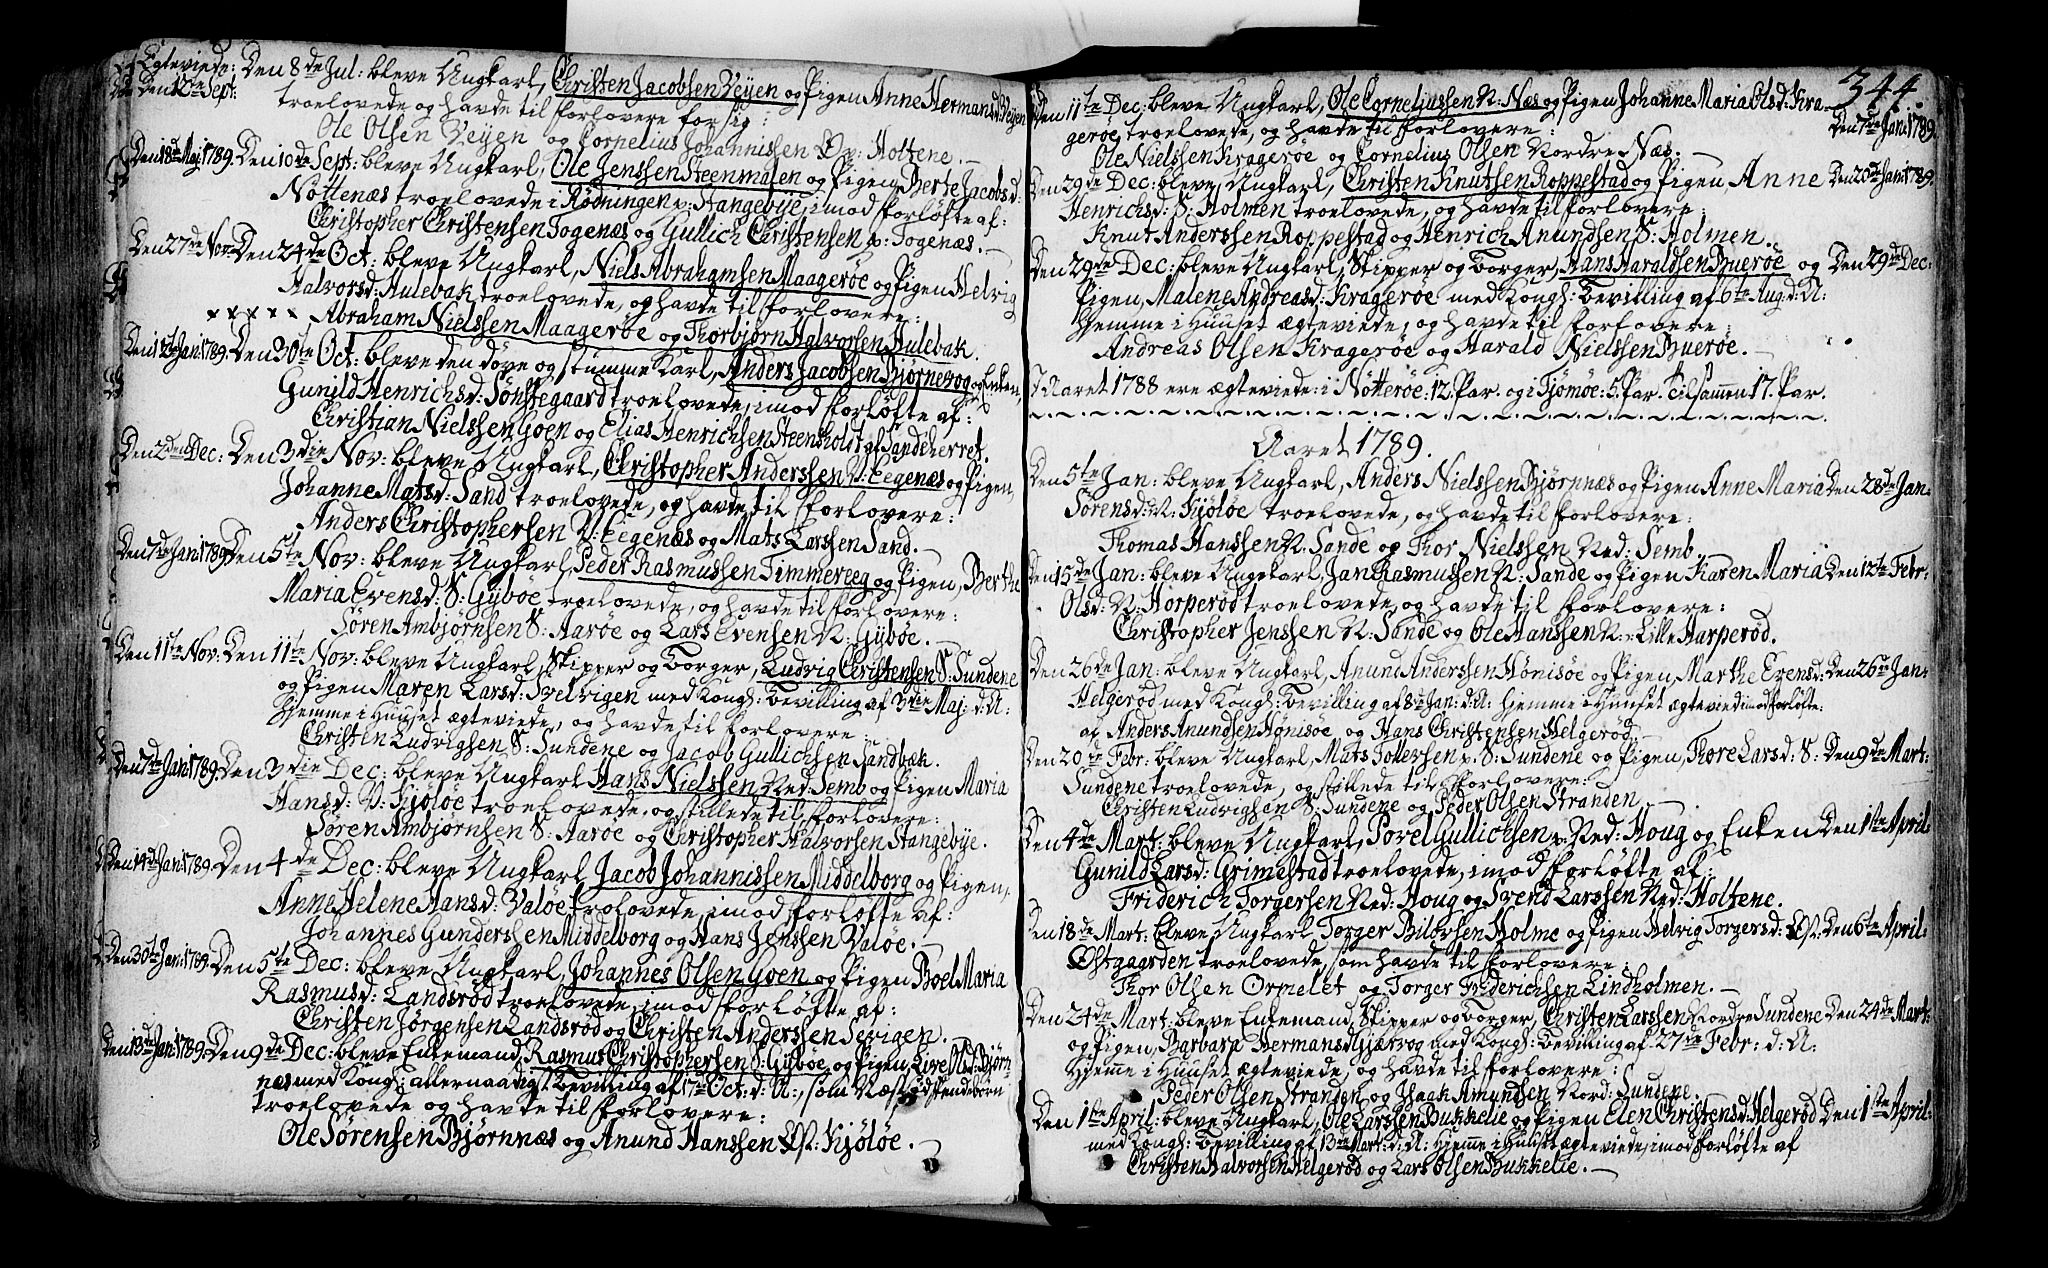 Egteviede: Den 8de Jul: bleve Ungkarl, Christen Jacobsen Vejen og Pigen Anne Hermansd: Vejen
Den 12te Sept: troelovede og havde til forlovere for sig:
Ole Olsen Vejen og Cornelius Johannissen Øv: Holtene. —
Den 18de Maj: 1789. Den 10de Sept: bleve Ungkarl, Ole Jenssen Steenmalen og Pigen Berte Jacobsd:
Nöttenæs troelovede i Rödningen p: Stangebÿe, imod forløfte af:
Christopher Christensen Togenæs og Gullich Christensen p: Togenæs. —
Den 27de Nov: Den 24de Oct: bleve Ungkarl, Niels Abrahamsen Maagerøe og Pigen Helvig
Halvorsd: Hulebak troelovede, og havde til forlovere:
x x x x x Abraham Nielssen Maagerøe og Thorbjørn Halvorsen Hulebak.
Den 12te Jan: 1789. Den 30te Oct: bleve den døve og stumme Karl, Anders Jacobsen Bjørnevog og Enken,
Gunild Henrichsd: Sönstegaard troelovede, imod forløfte af:
Christian Nielssen Goen og Elias Henrichsen Steensholdt af Sandeherret.
Den 2den Dec: Den 3die Nov: bleve Ungkarl, Christopher Anderssen V: Eegenæs og Pigen,
Johanne Matsd: Sand troelovede, og havde til forlovere:
Anders Christophersen V: Eegenæs og Mats Larssen Sand. —
Den 7de Jan: 1789 Den 5te Nov: bleve Ungkarl, Peder Rasmussen Timmereeg og Pigen, Berthe
Maria Evensd: S: Gÿbøe troelovede, og havde til forlovere:
Søren Ambjørnsen S: Aarøe og Lars Evensen N: Gÿbøe. —
Den 11te Nov: Den 11te Nov: bleve Ungkarl, Skipper og Borger, Ludvig Christensen S: Sundene
og Pigen Maren Larsd: Svelvigen med Kongh: Bevilling af 3die Maj: d: A:
Hjemme i Huuset ægteviede, og havde til forlovere:
Christen Ludvigsen S: Sundene og Jacob Gullichsen Sandbek.
Den 7de Jan: 1789. Den 3die Dec: bleve Ungkarl Hans Nielssen Ned: Semb og Pigen Maria
Hansd: V: Kjöløe troelovede, og stillede til forlovere:
Søren Ambjørnsen S: Aarøe og Christopher Halvorsen Stangebÿe.
Den 14de Jan: 1789. Den 4de Dec: bleve Ungkarl Jacob Johannissen Middelborg og Pigen,
Anne Helene Hansd: Valøe troelovede, imod forløfte af:
Johannes Gunderssen Middelborg og Hans Jenssen Valøe. —
Den 30te Jan: 1789. Den 5te Dec: bleve Ungkarl, Johannes Olsen Goen og Pigen Boel Maria
Rasmusd: Landsrød troelovede, imod forløfte af:
Christen Jörgensen Landsröd og Christen Anderssen Sevigen.
Den 13de Jan: 1789. Den 9de Dec: bleve Enkemand, Rasmus Christophersen S: Gÿbøe og Pigen, Live Olsd: Bjørn-
næs med Kongh: allernaadigst Bevilling af 17de Oct: d: A:, som Næstsødskendebørn
troelovede og havde til forlovere:
Ole Sörensen Bjørnnæs og Anund Hanssen Øst: Kjöløe. —
344.
Den 11te Dec: bleve Ungkarl, Ole Corneliussen N: Næs og Pigen Johanne Maria Olsd: Kra-
gerøe troelovede, og havde til forlovere: Den 7de Jan: 1789.
Ole Nielssen Kragerøe og Cornelius Olsen Nordre Næs. —
Den 29de Dec: bleve Ungkarl, Christen Knutsen Roppestad og Pigen, Anne Den 20de Jan: 1789.
Henrichsd: S: Holmen troelovede, og havde til forlovere:
Knut Anderssen Roppestad og Henrich Anundsen S: Holmen.
Den 29de Dec: bleve Ungkarl, Skipper og Borger, Hans Haraldsen Buerøe og Den 29de Dec:
Pigen, Malene Andreasd: Kragerøe med Kongh: Bevilling af 6te Aug: d: A:
Hjemme i Huuset ægteviede, og havde til forlovere:
Andreas Olsen Kragerøe og Harald Nielssen Buerøe. —
I Aaret 1788 ere ægteviede: i Nötterøe: 12. Par. og i Tjømøe: 5. Par. Tilsammen 17. Par.
Aaret 1789.
Den 5te Jan: bleve Ungkarl, Anders Nielssen Bjørnnæs og Pigen Anne Maria Den 28de Jan:
Sörensd: N: Kjöløe troelovede, og havde til forlovere:
Thomas Hanssen N: Sande og Thor Nielssen Ned: Semb.
Den 15de Jan: bleve Ungkarl, Jan Rasmussen N: Sande og Pigen Karen Maria Den 12te Febr:
Olsd: N: Horperød troelovede, og havde til forlovere:
Christopher Jenssen N: Sande og Ole Hanssen N: Lille Harperød.
Den 26de Jan: bleve Ungkarl, Anund Anderssen Hønisøe og Pigen, Marthe Evensd: Den 26de Jan:
Helgeröd med Kongh: Bevilling af 8de Jan: d: A: Hjemme i Huuset ægteviede imod forløfte:
af Anders Anundsen Hønisøe og Hans Christensen Helgerød.
Den 20de Febr: bleve Ungkarl, Mats Tollevsen p. S: Sundene og Pigen, Thore Larsd: S: Den 9de Mart:
Sundene troelovede, og stillede til forlovere:
Christen Ludvigsen S: Sundene og Peder Olsen Stranden. —
Den 4de Mart: bleve Ungkarl, Povel Gullichsen v: Ned: Houg og Enken Den 1ste April:
Gunild Larsd: Grimestad troelovede, imod forløfte af:
Friderich Torgersen Ned: Houg og Svend Larssen Ned: Holtene.
Den 18de Mart: bleve Ungkarl, Torger Bilovsen Holme og Pigen Helvig Torgersd: Øst: Den 6te April:
Østgaarden troelovede, som havde til forlovere:
Thor Olsen Ormelet og Torger Friderichsen Lindholmen. —
Den 24de Mart: bleve Enkemand, Skipper og Borger, Christen Larssen Nordre Sundene Den 24de Mart:
og Pigen, Barbara Hermansd: Gjærvog med Kongh: Bevilling af 27de Febr: d: A:
Hjemme i Huuset ægteviede, og havde til forlovere:
Peder Olsen Stranden og Isaach Amundsen Nord: Sundene.
Den 1ste April: bleve Ungkarl, Ole Larssen Bukkelie og Pigen Elen Christensd: Helgerød Den 1ste April:
med Kongh: Bevilling af 13de Mart: d: A: Hjemme i Huuset ægteviede, imod forløfte af
Christen Halvorsen Helgerød og Lars Olsen Bukkelie. —